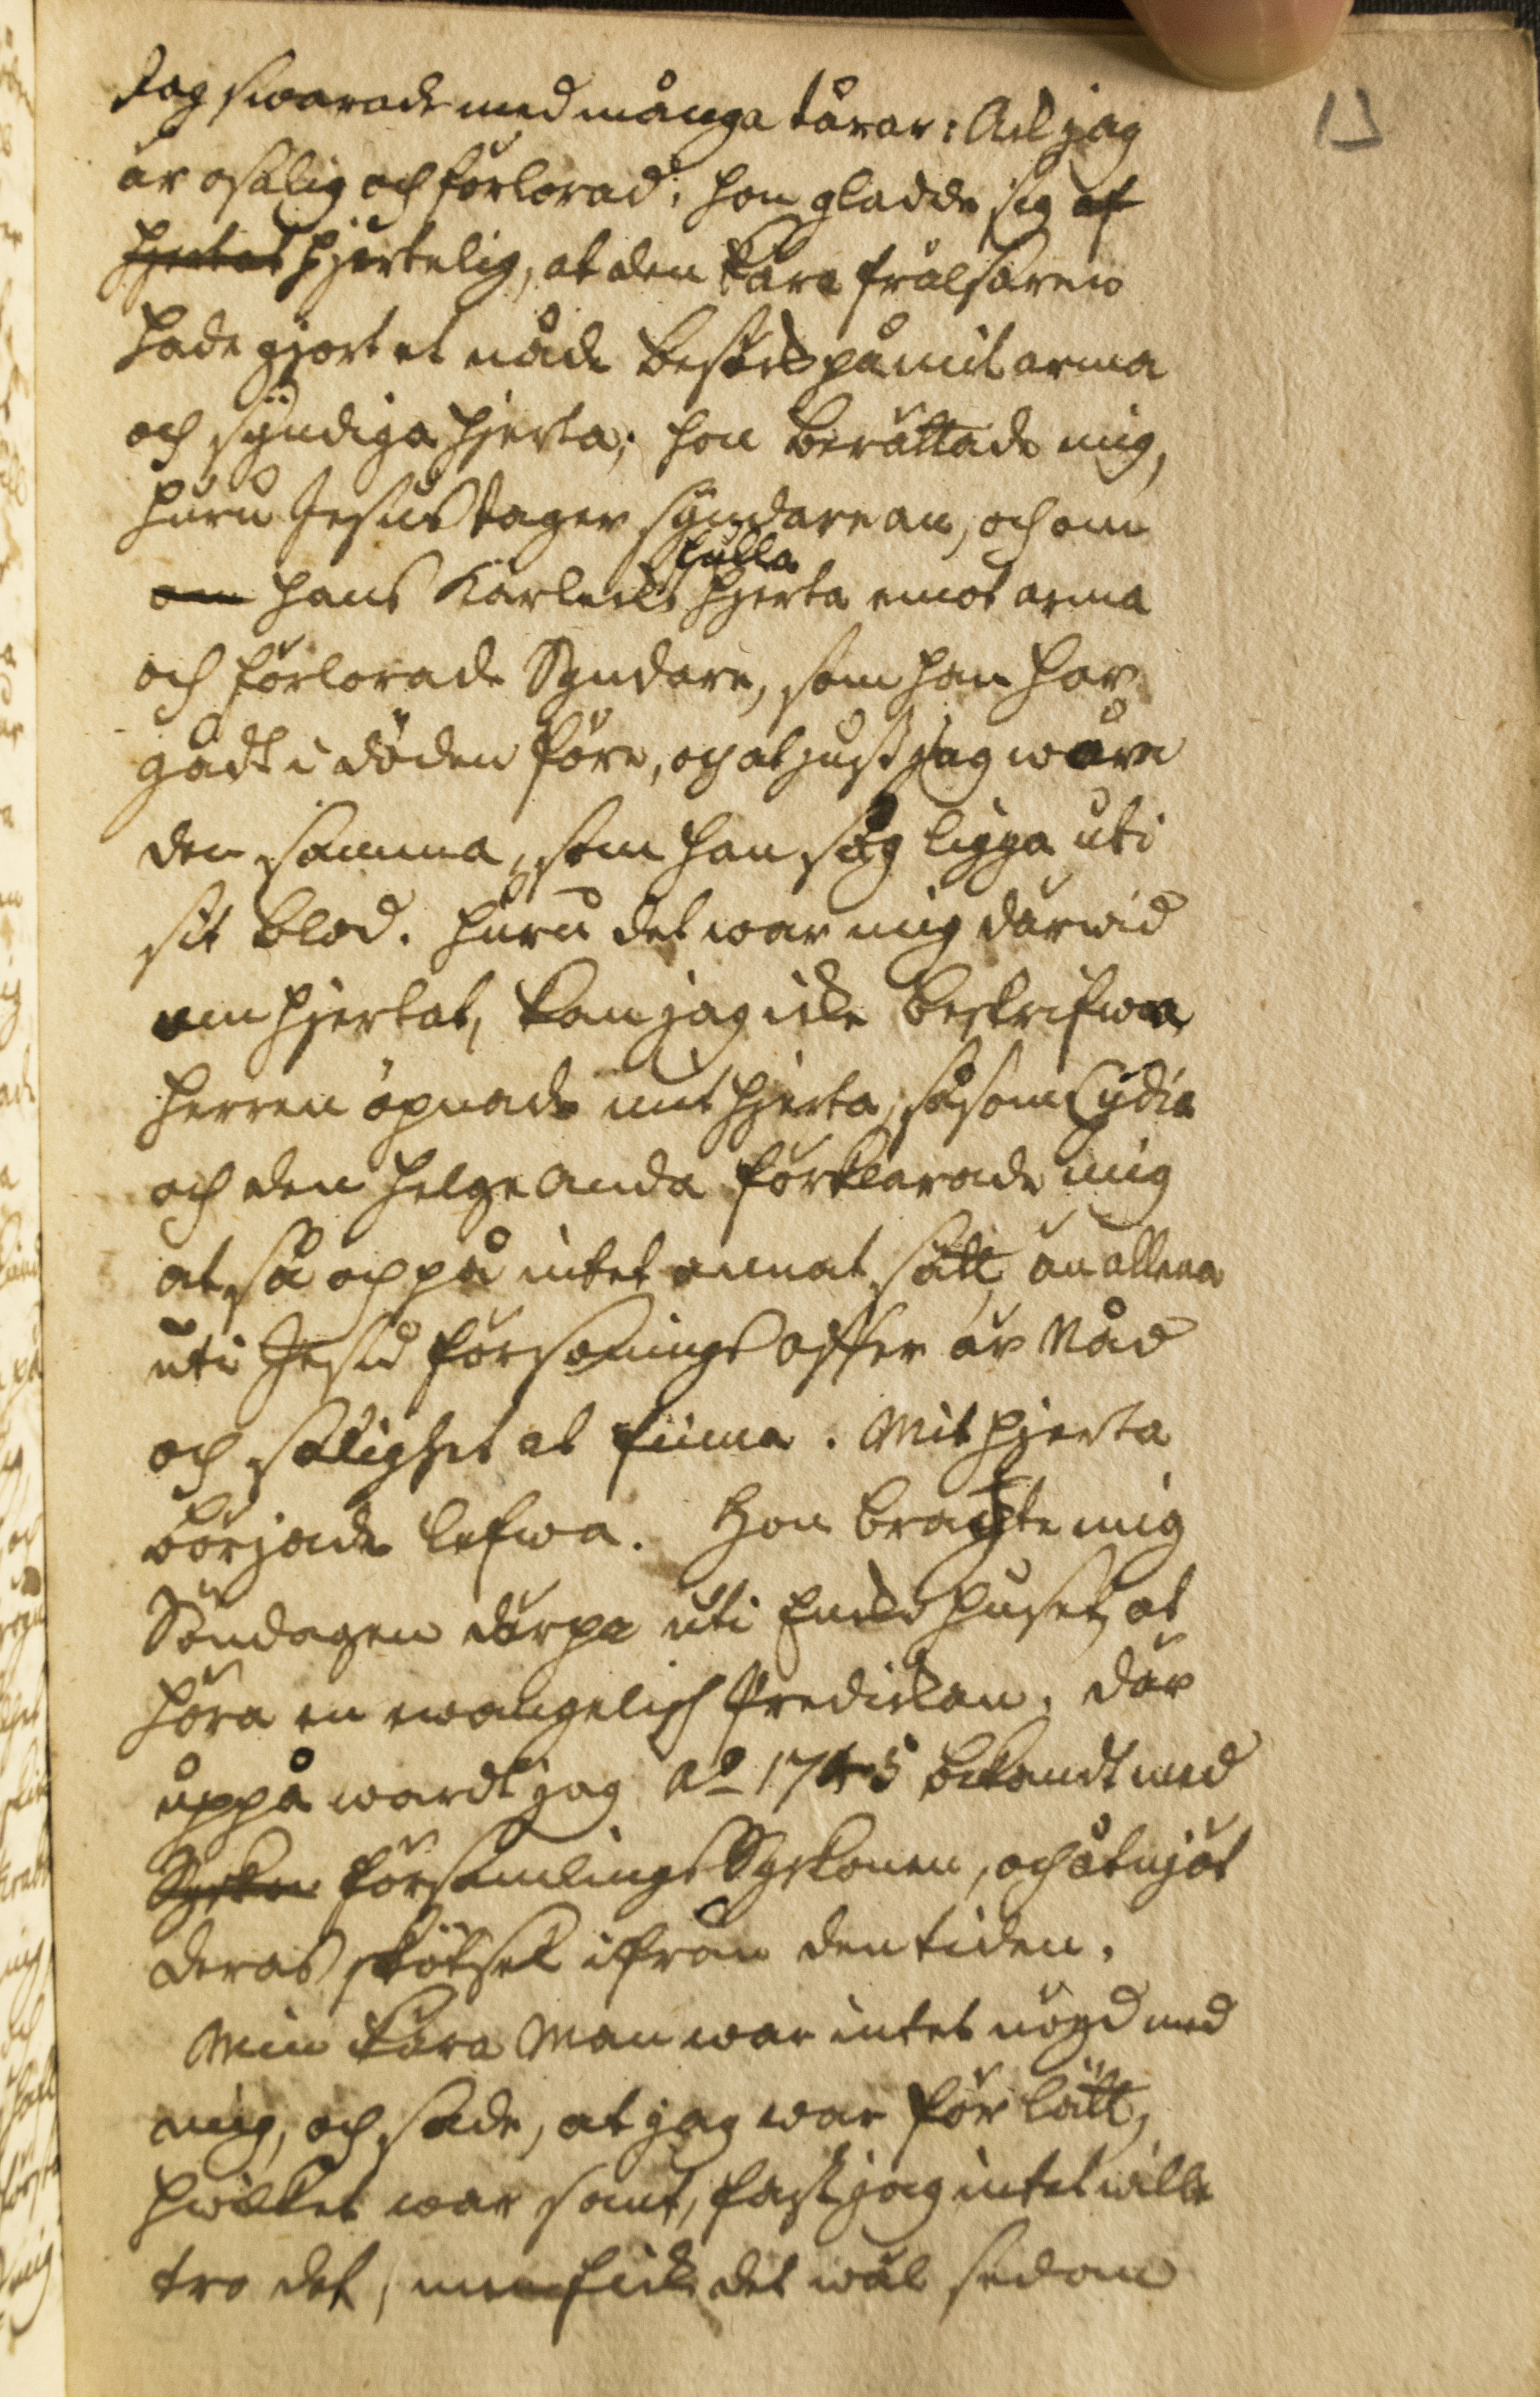 13
Jag swarade med många tårar: Ack jag
är osalig och förlorad. hon gladde sig af
hjertat hjertelig, at den kära frälsaren
hade gjort et nåde besök på mit arma
och syndiga hjerta; hon berättade mig,
huru Jesus tager syndare an, och om
fulla
om hans kärleks hjerta emot arma
och förlorade Syndare, som han har
gådt i döden före, och at just jag wäre
den samma, som han såg ligga uti
sit blod. huru det war mig därwid
om hjertat, kan jag icke beskrifwa
herren öpnade mit hjerta, såsom Lydiæ
och den helge anda förklarade mig
at så och på intet annat sätt, än allena
uti Jesu försonings offer är Nåd
och salighet at finna. Mit hjerta
började lefwa. Hon brachte mig
Söndagen därpå uti huset, at
höra en ewangelisch Predickan. där
uppå wardt jag Ao 1745 bekandt med
Syskon församlings Syskonen, och åtnjöt
deras skötsel ifrån den tiden.
Min kära Man war intet nögd med
mig, och sade, at jag war för lätt,
hwilket war sant, fast jag intet wille
tro det, men fick det wäl sedan